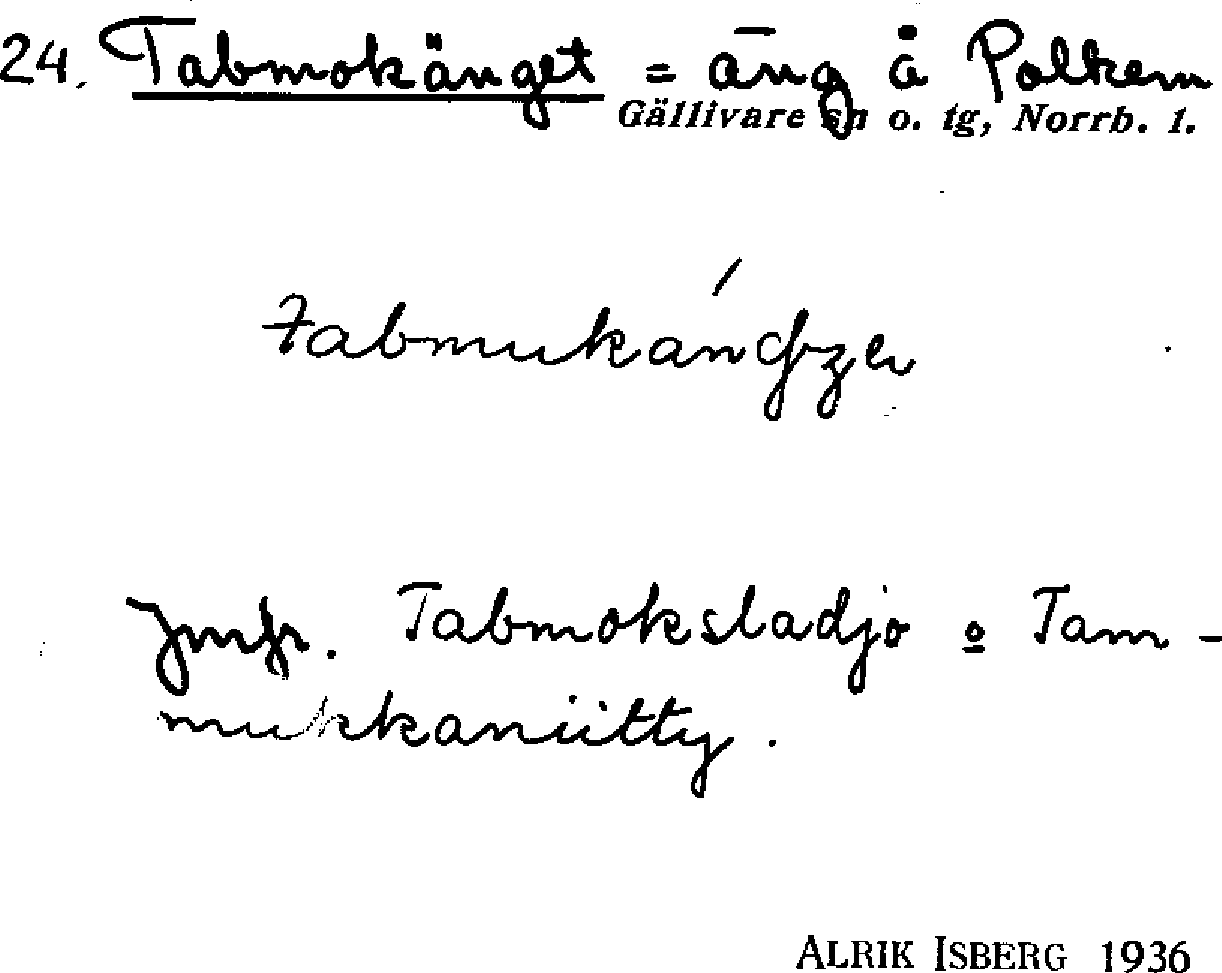 24. Tabmokänget = äng å Polkem
Gällivare sn o. tg, Norrb. l.
Jmfr. Tabmoksladjo o Tam-
mukkaniitty.
ALRIK ISBERG 1936